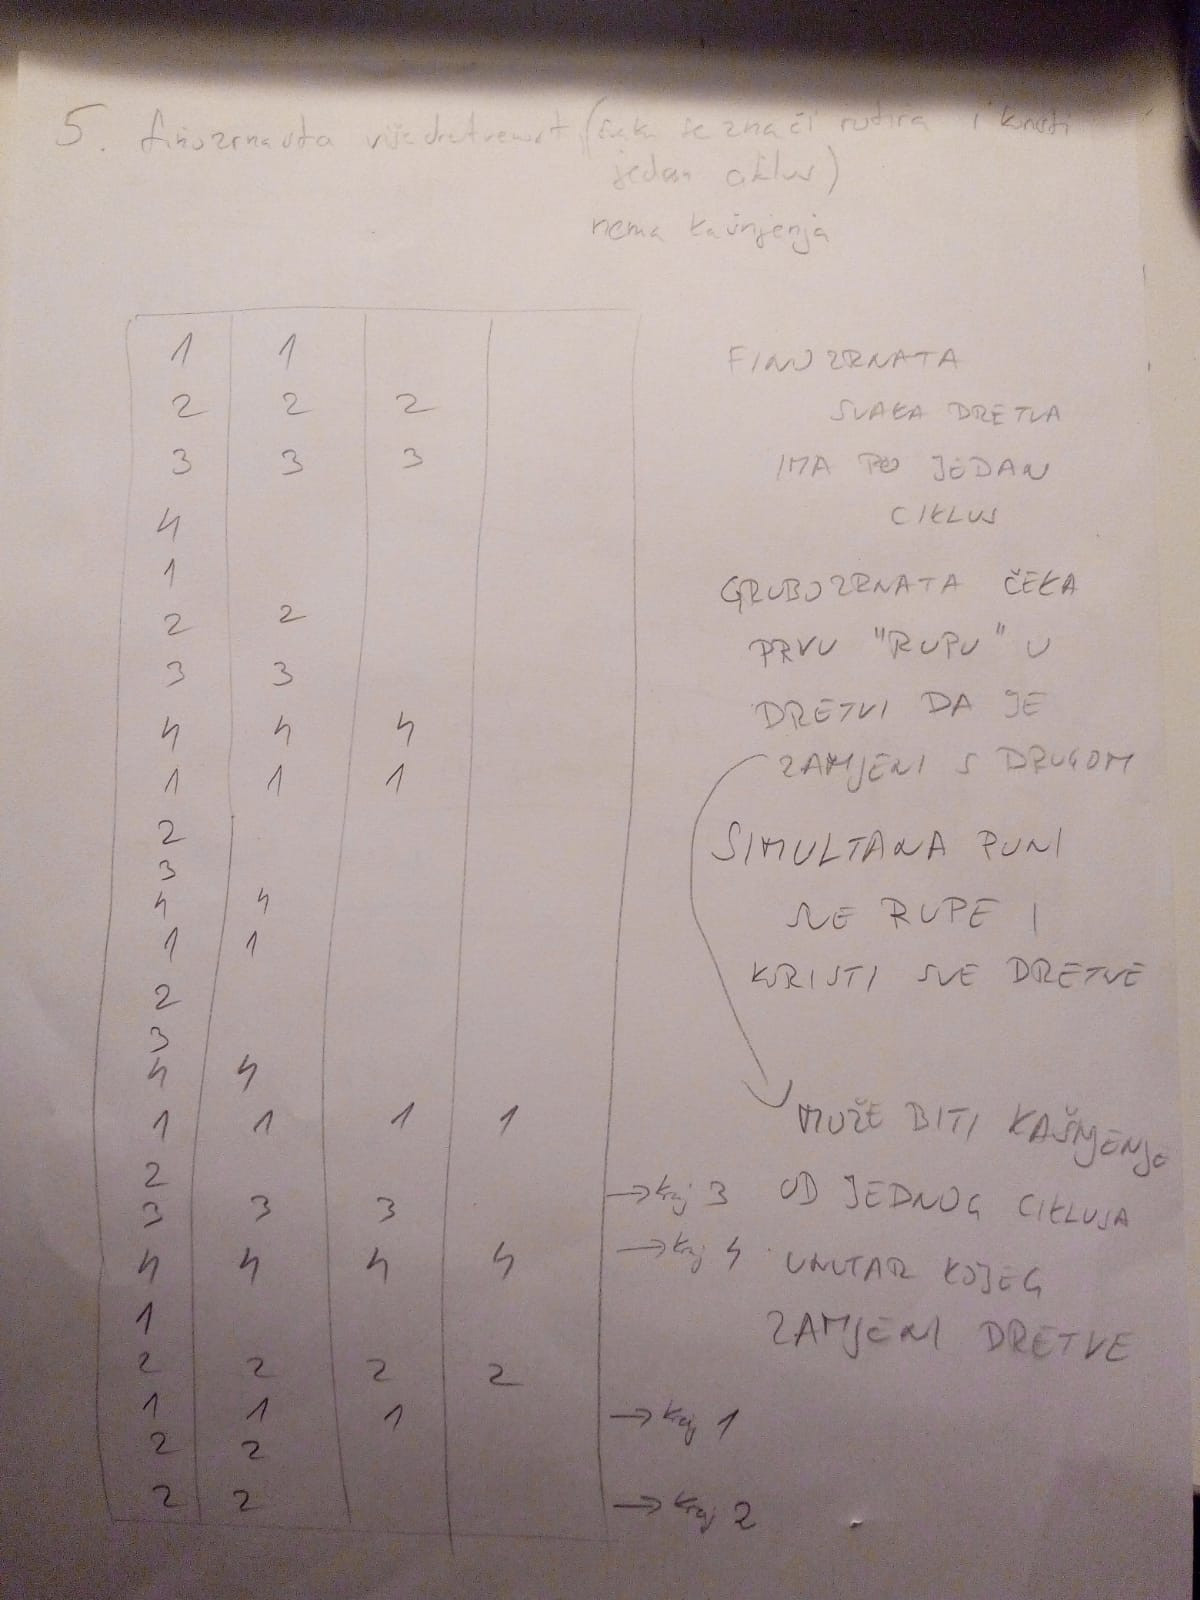 5. finozrnasta višedretvenost (svaka se znači rotira i koristi
jedan ciklus)
nema kašnjenja
1 1
2 2 2
3 3 3
4
1
2 2
3 3
4 4 4
1 1 1
2
3
4 4
1 1
2
3
4 4
1 1 1 1
2
3 3 3 → kraj 3
4 4 4 4 → kraj 4
1
2 2 2 2
1 1 1 → kraj 1
2 2
2 2 → kraj 2
FINOZRNATA
SVAKA DRETVA
IMA PO JEDAN
CIKLUS
GRUBOZRNATA ČEKA
PRVU "RUPU" U
DRETVI DA JE
ZAMJENI S DRUGOM
SIMULTANA PUNI
SVE RUPE I
KORISTI SVE DRETVE
MOŽE BITI KAŠNJENJE
OD JEDNOG CIKLUSA
UNUTAR KOJEG
ZAMJENI DRETVE